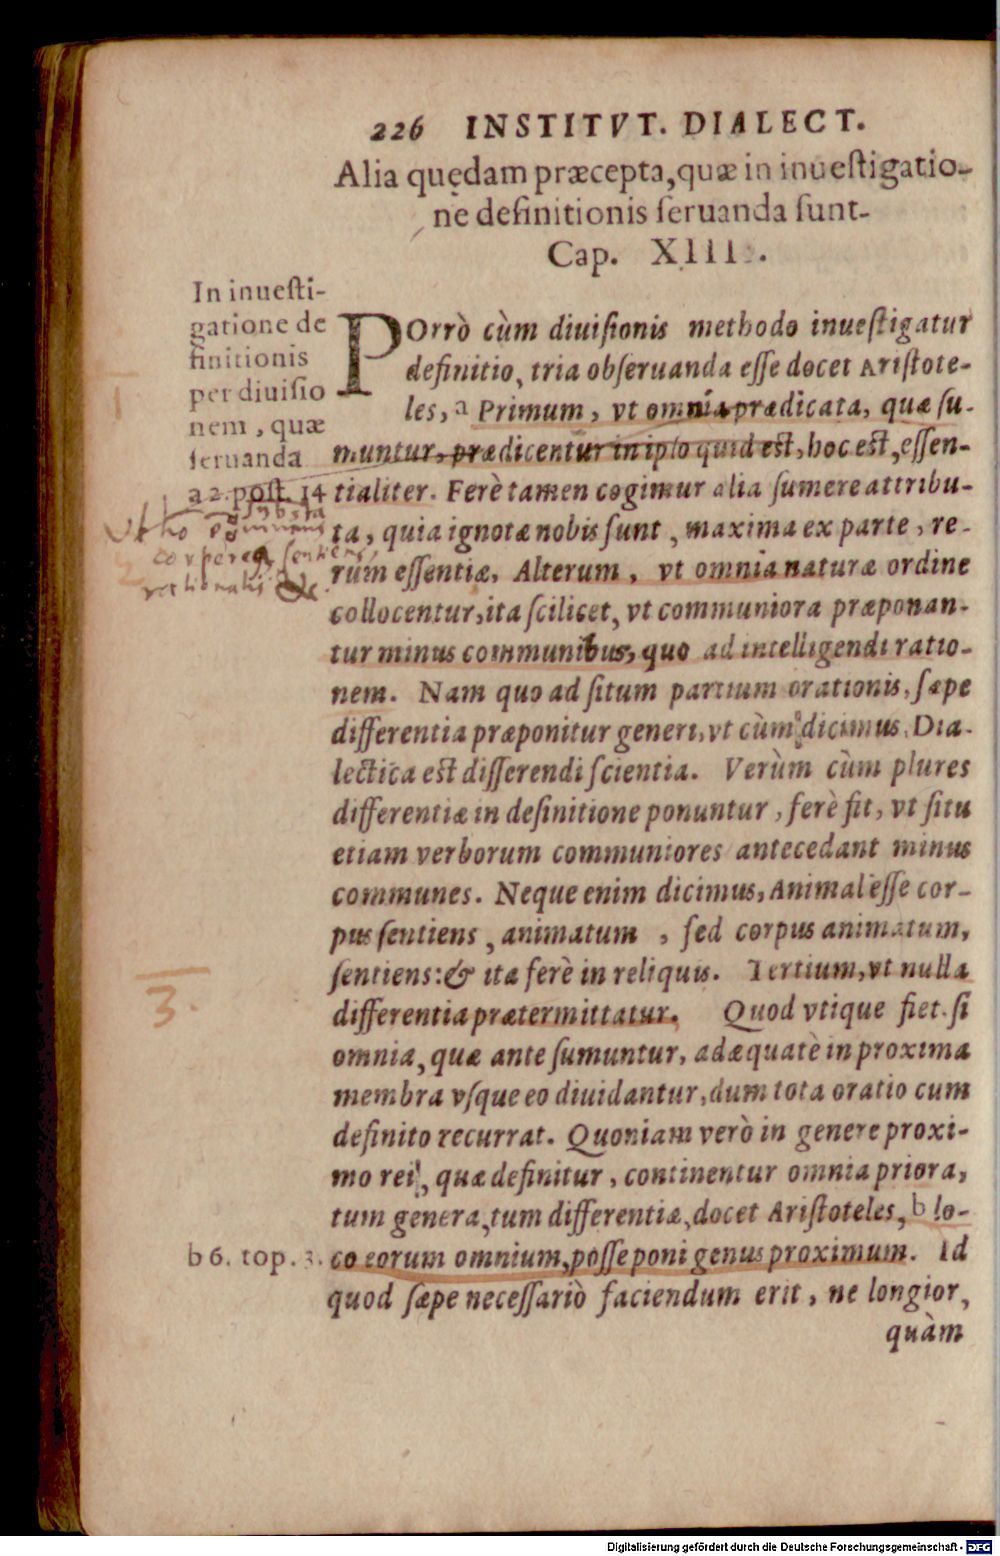 226 INSTITVT. DIALECT.
Alia quędam præcepta, quæ in inueſtigatio-
ne definitionis ſeruanda ſunt.
Cap. XIII.
In inueſti-
gatione de
finitionis
per diuiſio
nem, quæ
ſeruanda
a 2. poſt. 14
POrrò cùm diuiſionis methodo inueſtigatur
definitio, tria obſeruanda eſſe docet Ariſtote-
les, a Primum, vt omnia prædicata, quæ ſu-
muntur, prædicentur in ipſo quid eſt, hoc eſt, eſſen-
tialiter. Ferè tamen cogimur alia ſumere attribu-
ta, quia ignotæ nobis ſunt, maxima ex parte, re-
rum eſſentiæ. Alterum, vt omnia naturæ ordine
collocentur, ita ſcilicet, vt communiora præponan-
tur minus communibus, quo ad intelligendi ratio-
nem. Nam quo ad ſitum partium orationis, ſæpe
differentia præponitur generi, vt cùm dicimus, Dia-
lectica eſt diſſerendi ſcientia. Verùm cùm plures
differentiæ in definitione ponuntur, ferè fit, vt ſitu
etiam verborum communiores antecedant minus
communes. Neque enim dicimus, Animal eſſe cor-
pus ſentiens, animatum, ſed corpus animatum,
ſentiens: & ita ferè in reliquis. Tertium, vt nulla
differentia prætermittatur. Quod vtique fiet. ſi
omnia, quæ ante ſumuntur, adæquatè in proxima
membra vſque eo diuidantur, dum tota oratio cum
definito recurrat. Quoniam verò in genere proxi-
mo rei, quæ definitur, continentur omnia priora,
tum genera, tum differentiæ, docet Ariſtoteles, b lo-
co eorum omnium, poſſe poni genus proximum. Id
quod ſæpe neceſſariò faciendum erit, ne longior,
quàm
1
Vt ho
corporea, ſentiens,
rationalis &c.
2
3.
b 6. top. 3.
Digitalisierung gefördert durch die Deutsche Forschungsgemeinschaft - DFG